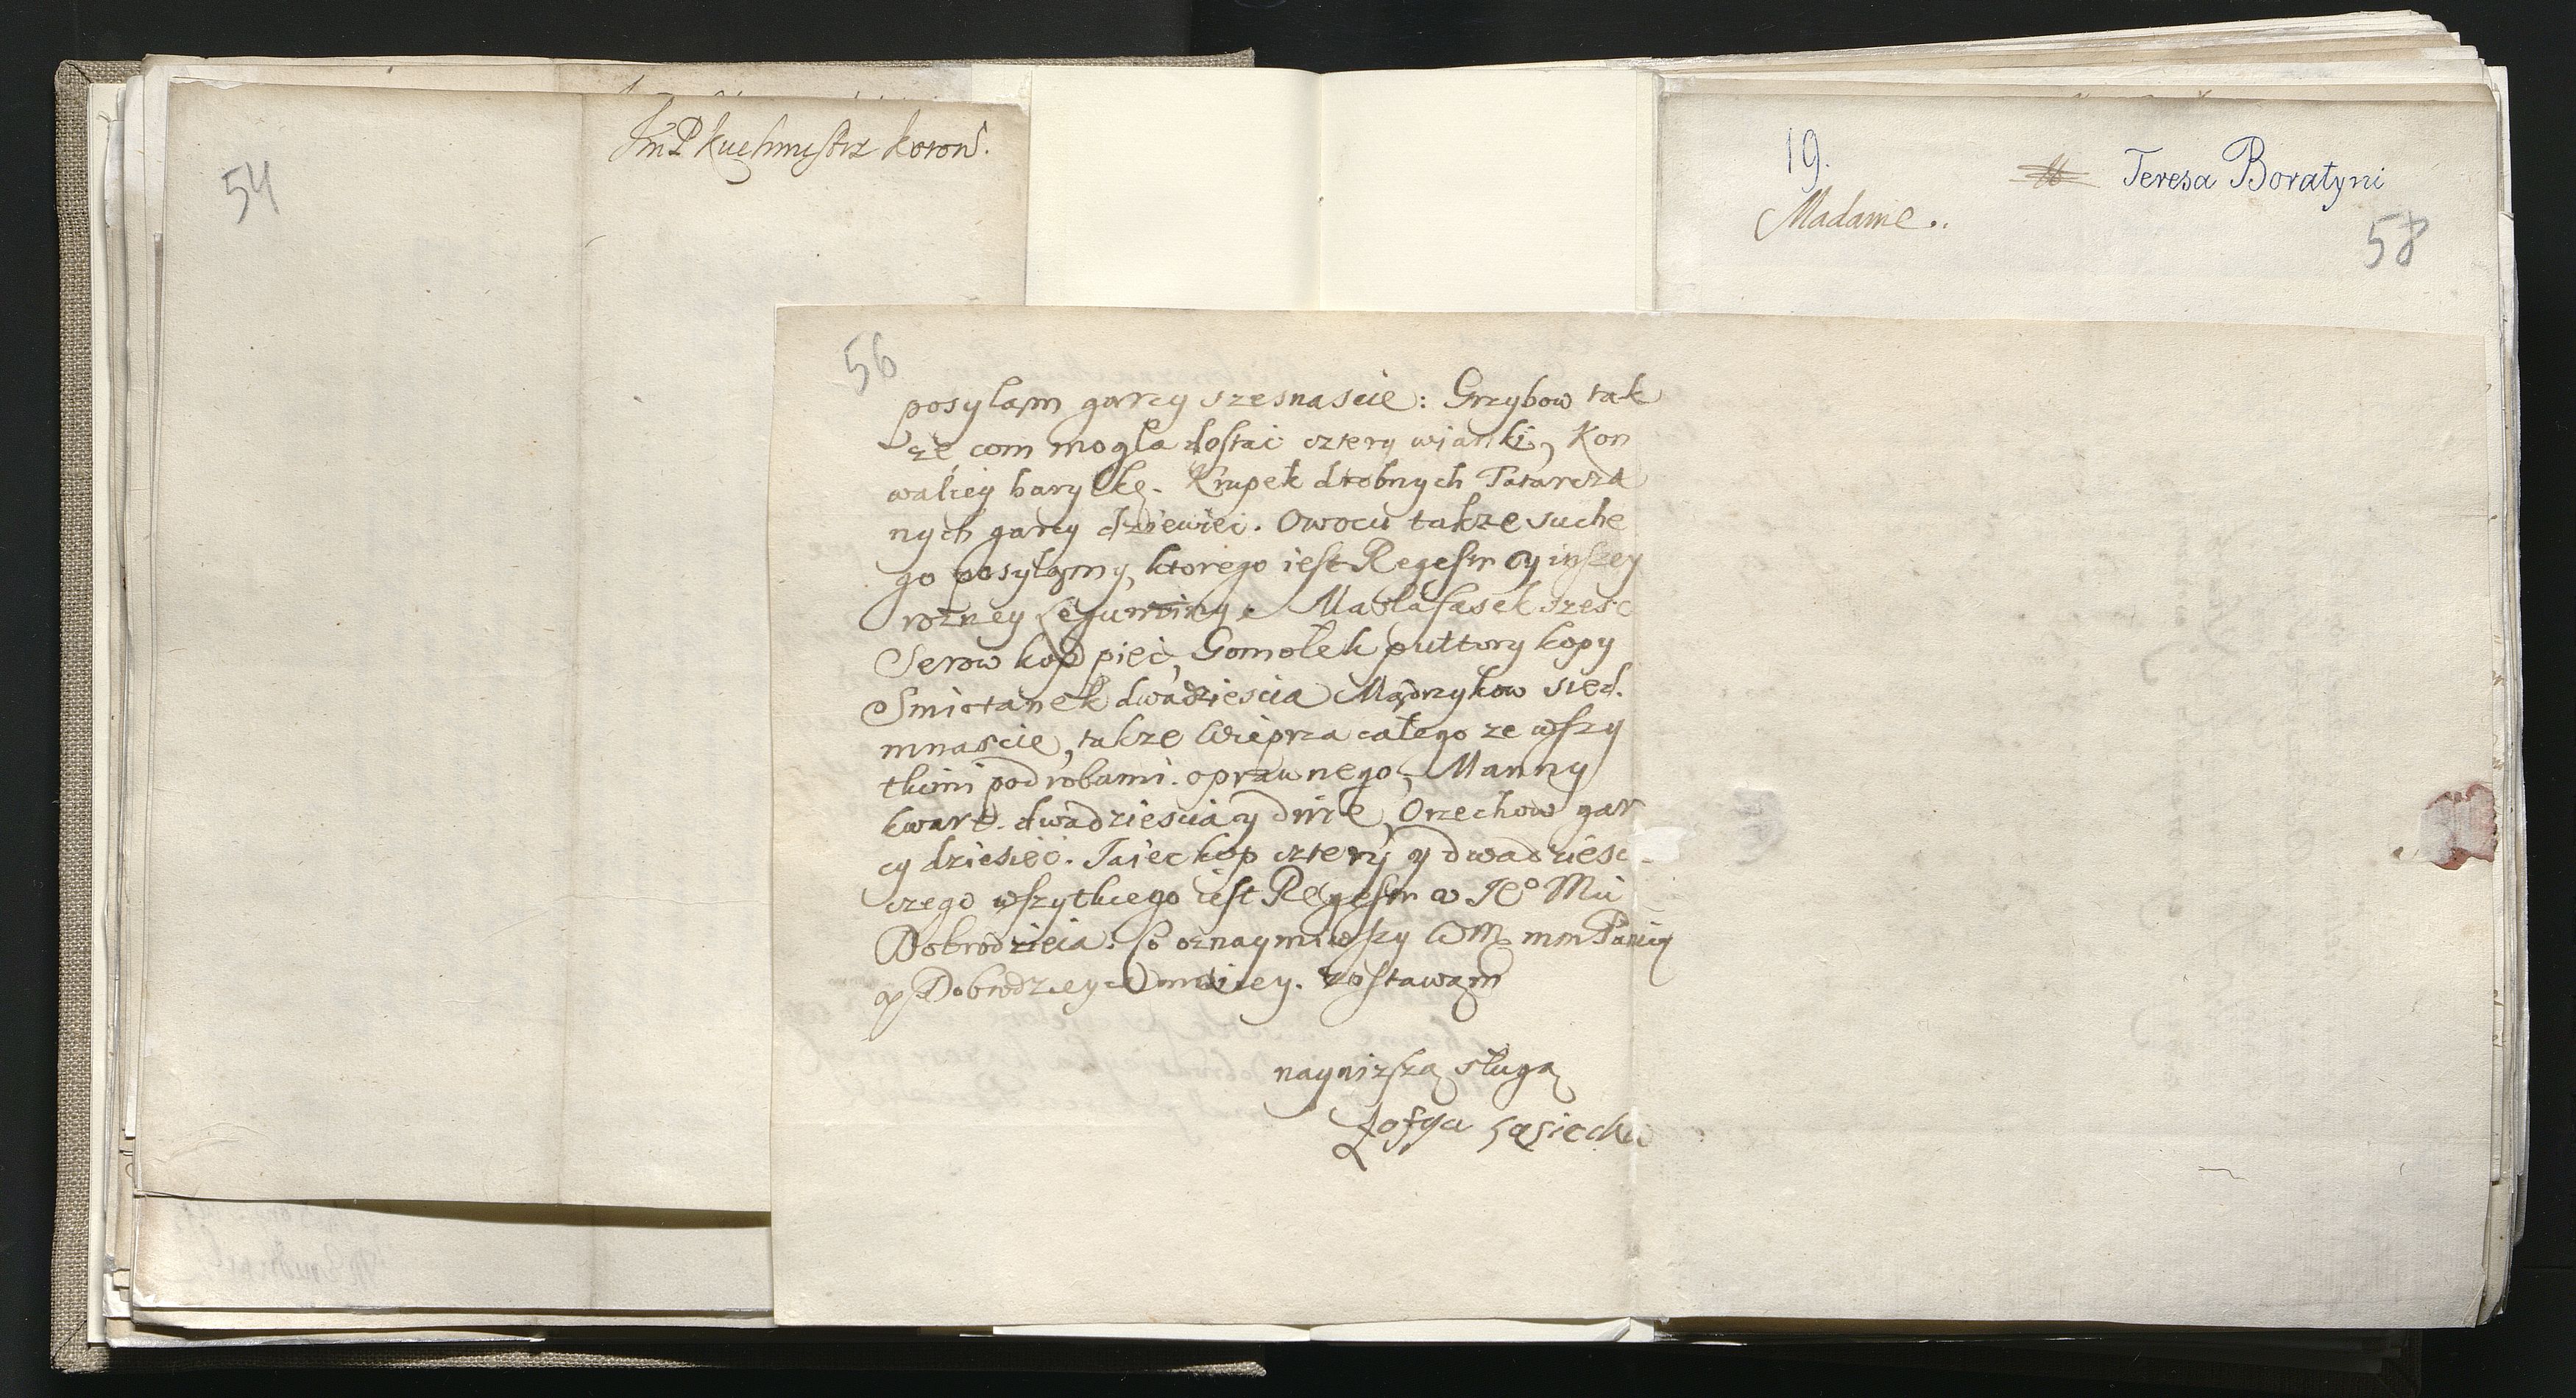 54
JmP kuchmistrz koron.
19.
Teresa Boratyni
Madame..
58
56
posyłąm garcy szesnascie: Grzybow tak
ze com mogla dostac cztery wianki, Kon
waliey baryłkę. Krupek drobnych Tatarcza
nych garcy dziewiec. Owocu takze suche
go posyłąmy, ktorego iest Regestr y inszey
rozney Leguminy. Masla fasek szesc
Serow kop pięc, Gomołek pułtory kopy
Smiotanek dwadziescia Mądrzykow sied.
mnascie, takze Wieprza całego ze wszy
tkimi podrobami oprawnego, Manny
kwart. dwadziescia y dwie, Orzechow gar
cy dziesięc. Jaiec kop cztery y dwadziesc.
czego wszytkiego iest Regestr v Jeº Mci
Dobrodzieia. Co oznaymiwszy WM mm Paniey
y Dobrodzieyce mwiey. zostawąm
naynizszą sługą
Zofya Łąsiecka